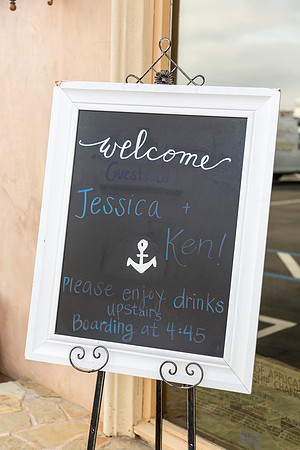 welcome
Guests of
Jessica +
Ken!
Please enjoy drinks
upstairs
Boarding at 4:45